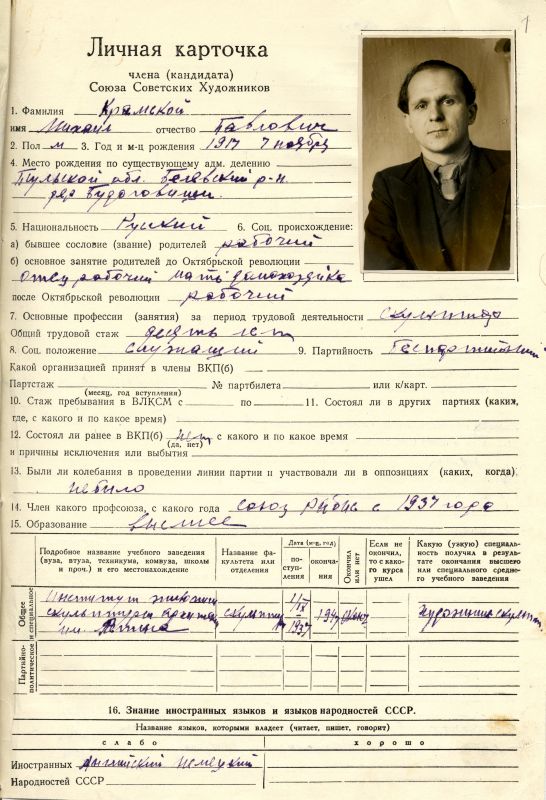 1
Личная карточка
члена (кандидата)
Союза Советских Художников
1. Фамилия Крамской
имя Михаил отчество Павлович
2. Пол м 3. Год и м-ц рождения 1917 7 ноября
4. Место рождения по существующему адм. делению
Тульской обл. Белевский р-н.
дер. Будоговищи.
5. Национальность Руский 6. Соц. происхождение:
а) бывшее сословие (звание) родителей рабочий
б) основное занятие родителей до Октябрьской революции
Отец рабочий мать домохозяйка
после Октябрьской революции рабочий
7. Основные профессии (занятия) за период трудовой деятельности скульптор
Общий трудовой стаж десять лет
8. Соц. положение служащий 9. Партийность Беспартийный
Какой организацией принят в члены ВКП(б)
Партстаж № партбилета или к/карт.
(месяц, год вступления)
10. Стаж пребывания в ВЛКСМ с по 11. Состоял ли в других партиях (каких,
где, с какого и по какое время)
12. Состоял ли ранее в ВКП(б) нет с какого и по какое время
(да, нет)
и причины исключения или выбытия
13. Были ли колебания в проведении линии партии и участвовали ли в оппозициях (каких, когда)
небыло
14. Член какого профсоюза, с какого года союз Рабис с 1937 года
15. Образование высшее
Подробное название учебного заведения (вуза, втуза, техникума, комвуза, школы и проч.) и его местонахождение
Название факультета или отделения
Дата (м-ц, год)
поступления
окончания
Окончил или нет
Если не окончил, то с какого курса ушел
Какую (узкую) специальность получил в результате окончания высшего или специального среднего учебного заведения
Общее и специальное
Институт живописи
скульптуры
им. Репина
скульптур
1/IX
1937
194
художник скульпт
Партийно-политическое
16. Знание иностранных языков и языков народностей СССР.
Название языков, которыми владеет (читает, пишет, говорит)
слабо хорошо
Иностранных Английский Немецкий
Народностей СССР